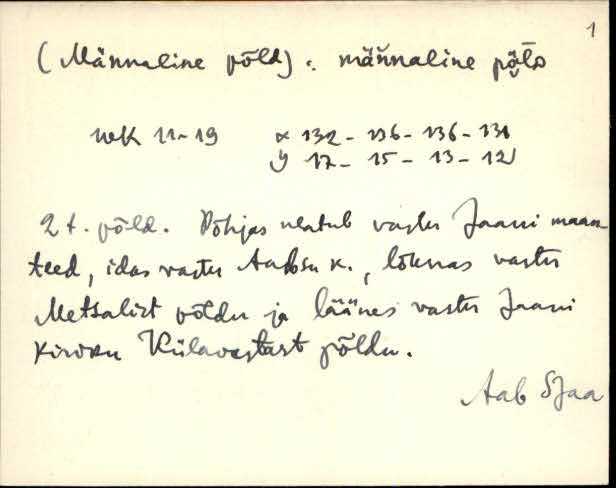 1
(Männaline põld) : männaline
WK 11-19 x 132 - 136 - 136 - 131
y 17 - 15 - 13 - 12
2 t. põld. Põhjas ulatub vastu Jaani maan-
teed, idas vastu k., lõunas vastu
Metsalist põldu ja läänes vastu Jaani
kiriku Külavastast põldu.
Aab SJaa